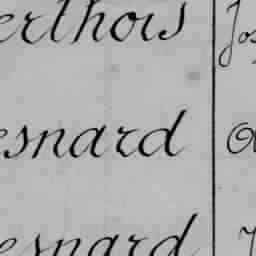 erthois Jos
esnard a
esnard